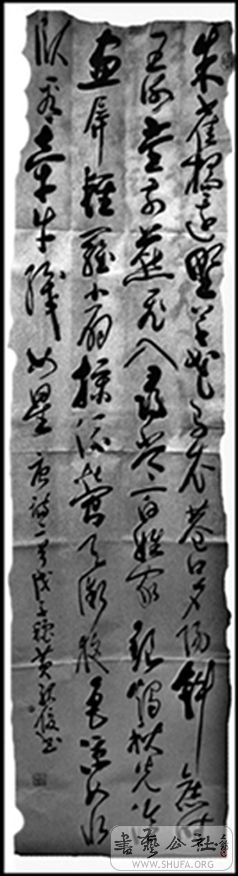 朱雀橋邊野草花烏衣巷口夕陽斜舊時
王謝堂前燕飛入尋常百姓家銀燭秋光冷
画屏輕羅小扇撲流螢天階夜色涼如水
臥看牽牛織女星 唐詩二首戊子黄書
書藝公社
WWW.SHUFA.ORG